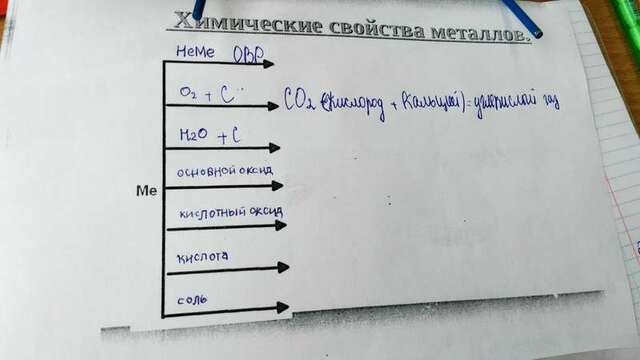 Химические свойства металлов.
НеМе ОВР
O₂ + C CO₂ (кислород + кальций) = углекислой газ
H₂O + C
основной оксид
Me
кислотный оксид
кислота
соль